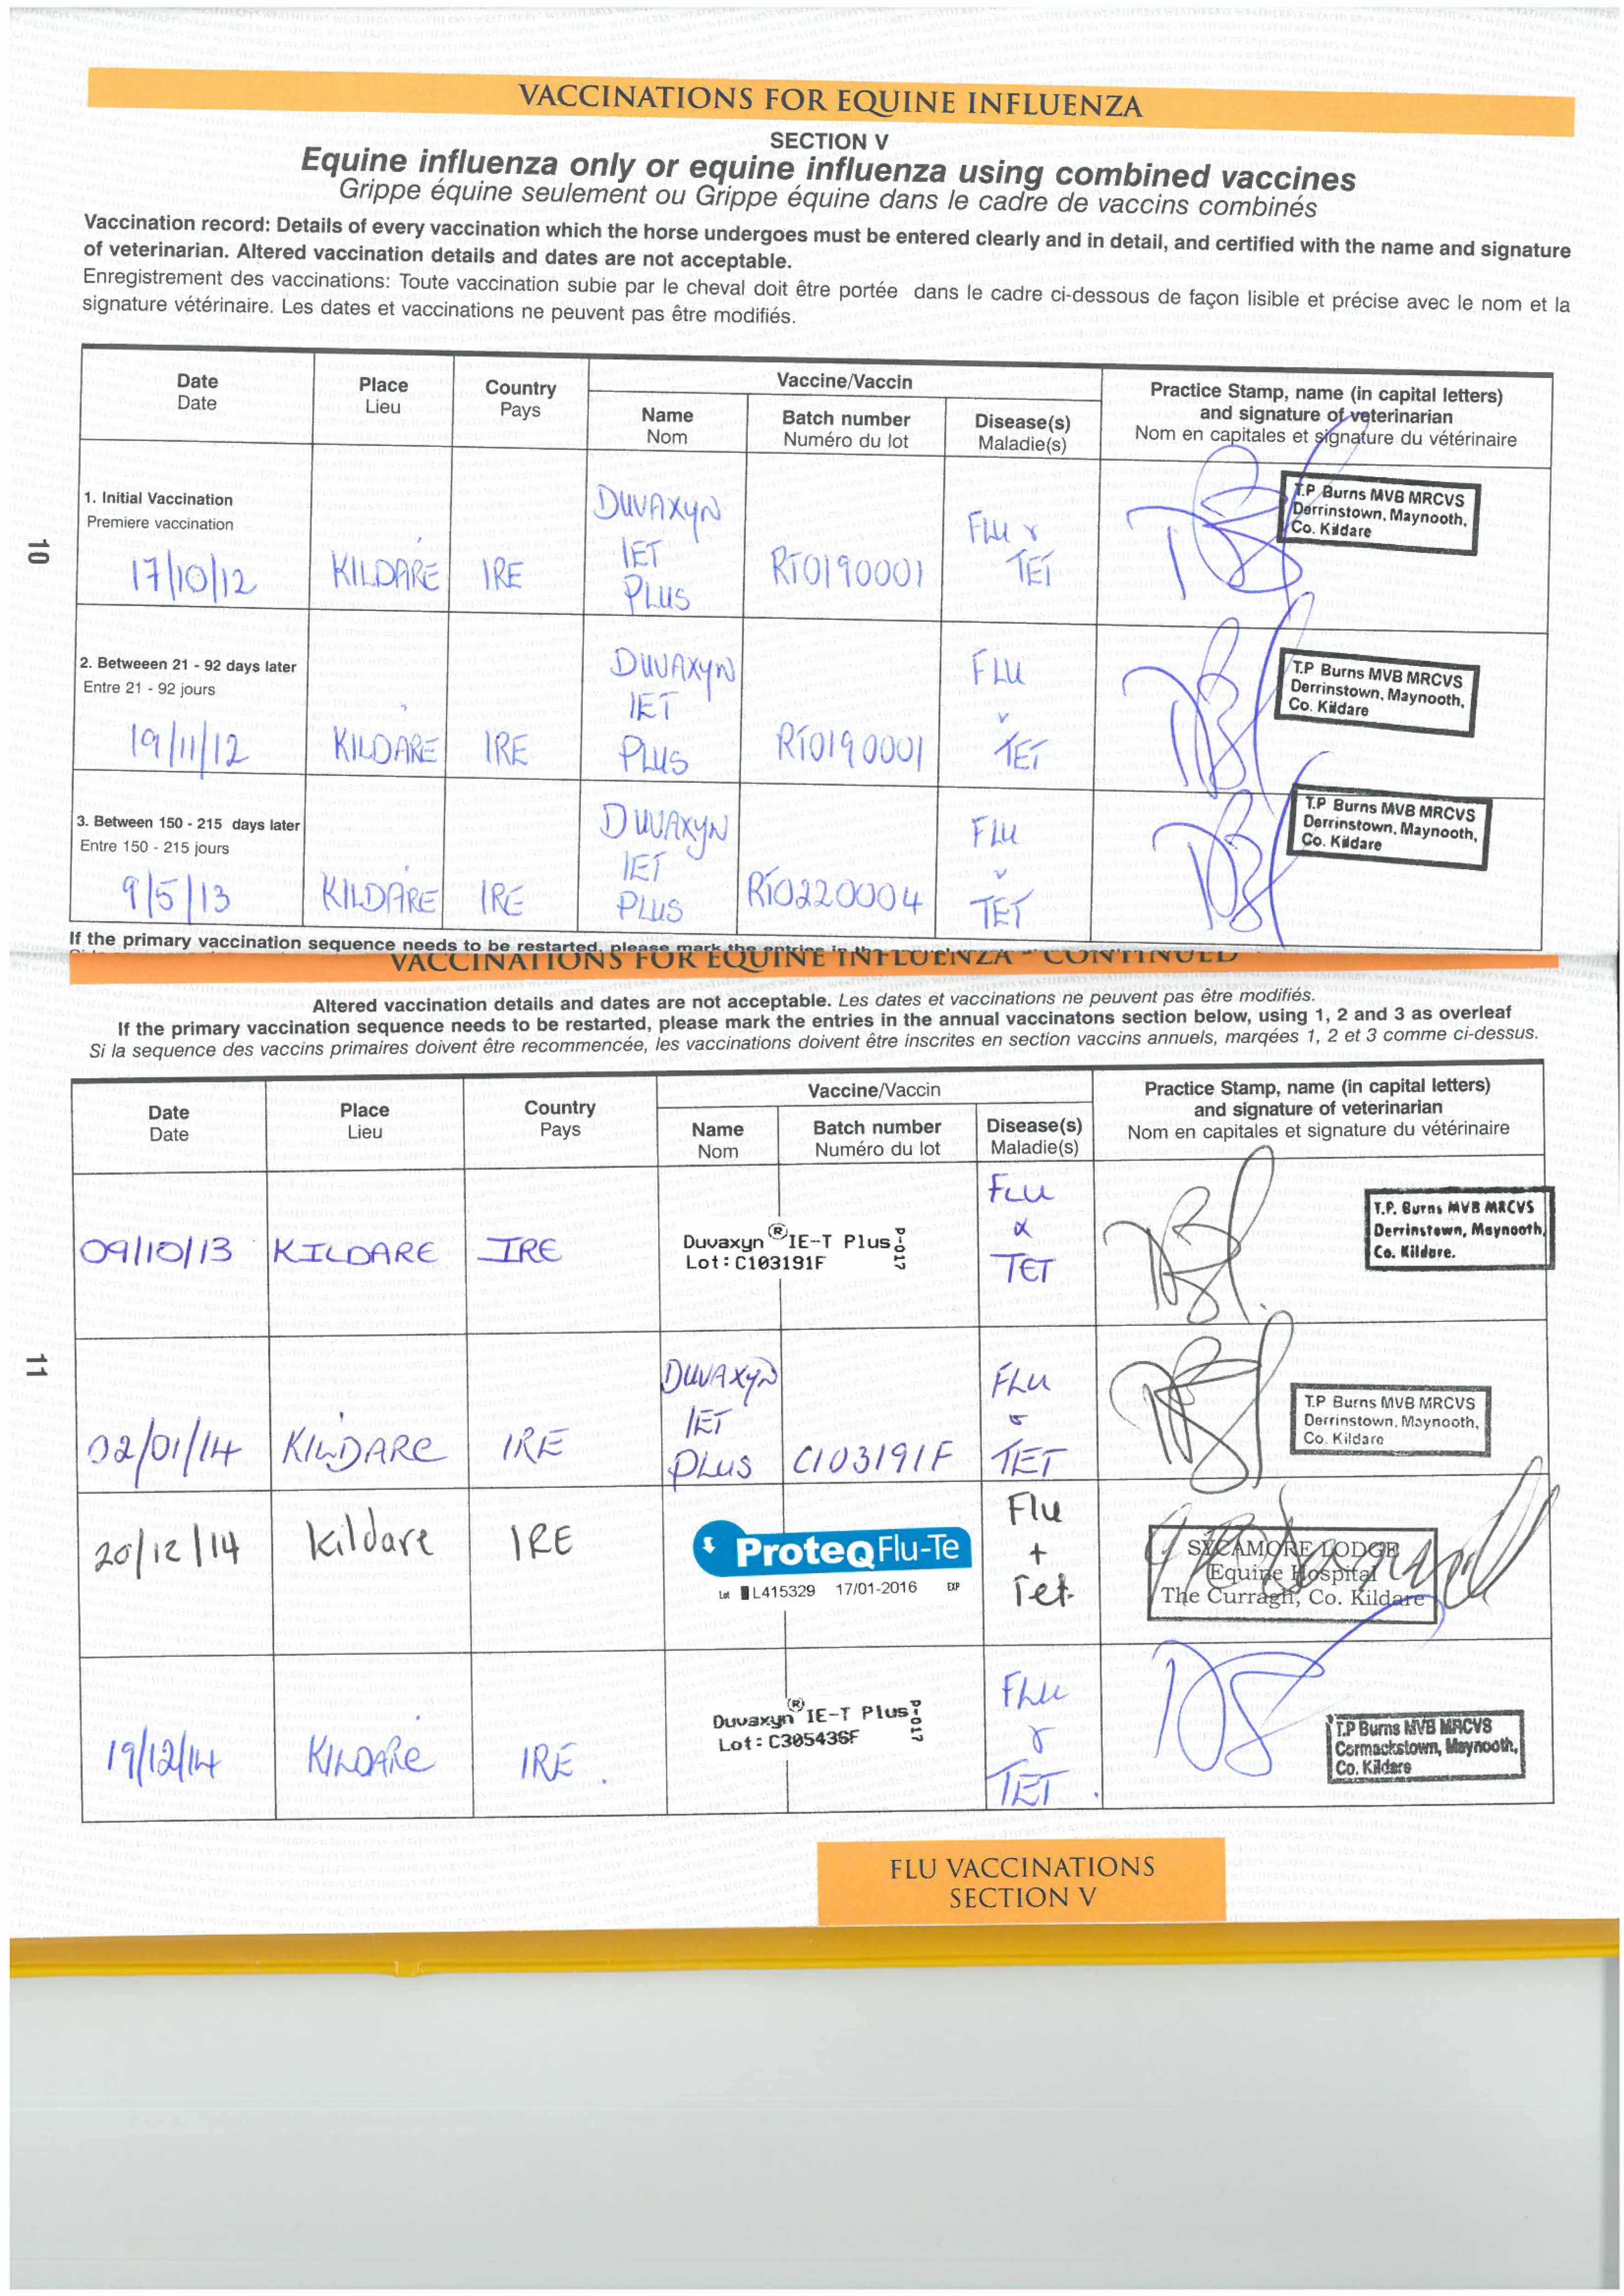 VACCINATIONS FOR EQUINE INFLUENZA
SECTION V
Equine influenza only or equine influenza using combined vaccines
Grippe équine seulement ou Grippe équine dans le cadre de vaccins combinés
Vaccination record: Details of every vaccination which the horse undergoes must be entered clearly and in detail, and certified with the name and signature
of veterinarian. Altered vaccination details and dates are not acceptable.
Enregistrement des vaccinations: Toute vaccination subie par le cheval doit être portée dans le cadre ci-dessous de façon lisible et précise avec le nom et la
signature vétérinaire. Les dates et vaccinations ne peuvent pas être modifiés.
Date
Date
Place
Lieu
Country
Pays
Vaccine/Vaccin
Name
Nom
Batch number
Numéro du lot
Disease(s)
Maladie(s)
Practice Stamp, name (in capital letters)
and signature of veterinarian
Nom en capitales et signature du vétérinaire
1. Initial Vaccination
Premiere vaccination
17/10/12
KILDARE
IRE
DUVAXYN
IET
PLUS
RT0190001
FLU &
TET
T.P Burns MVB MRCVS
Derrinstown, Maynooth,
Co. Kildare
10
2. Betweeen 21 - 92 days later
Entre 21 - 92 jours
19/11/12
KILDARE
IRE
DUVAXYN
IET
PLUS
RT0190001
FLU
&
TET
T.P Burns MVB MRCVS
Derrinstown, Maynooth,
Co. Kildare
3. Between 150 - 215 days later
Entre 150 - 215 jours
9/5/13
KILDARE
IRE
DUVAXYN
IET
PLUS
RT0220004
FLU
&
TET
T.P Burns MVB MRCVS
Derrinstown, Maynooth,
Co. Kildare
If the primary vaccination sequence needs to be restarted, please mark the entries in the
VACCINATIONS FOR EQUINE INFLUENZA - CONTINUED
Altered vaccination details and dates are not acceptable. Les dates et vaccinations ne peuvent pas être modifiés.
If the primary vaccination sequence needs to be restarted, please mark the entries in the annual vaccinatons section below, using 1, 2 and 3 as overleaf
Si la sequence des vaccins primaires doivent être recommencée, les vaccinations doivent être inscrites en section vaccins annuels, marqées 1, 2 et 3 comme ci-dessus.
Date
Date
Place
Lieu
Country
Pays
Vaccine/Vaccin
Name
Nom
Batch number
Numéro du lot
Disease(s)
Maladie(s)
Practice Stamp, name (in capital letters)
and signature of veterinarian
Nom en capitales et signature du vétérinaire
09/10/13
KILDARE
IRE
Duvaxyn ® IE-T Plus
Lot: C103191F
P-017
FLU
&
TET
T.P. Burns MVB MRCVS
Derrinstown, Maynooth,
Co. Kildare.
11
02/01/14
KILDARE
IRE
DUVAXYN
IET
PLUS
C103191F
FLU
&
TET
T.P Burns MVB MRCVS
Derrinstown, Maynooth,
Co. Kildare
20/12/14
Kildare
IRE
ProteqFlu-Te
Lot L415329 17/01-2016 EXP
Flu
+
Tet
SYCAMORE LODGE
Equine Hospital
The Curragh, Co. Kildare
19/12/14
KILDARE
IRE.
Duvaxyn ® IE-T Plus
Lot: C305436F
P-017
FLU
&
TET.
T.P Burns MVB MRCVS
Cormackstown, Maynooth,
Co. Kildare
FLU VACCINATIONS
SECTION V